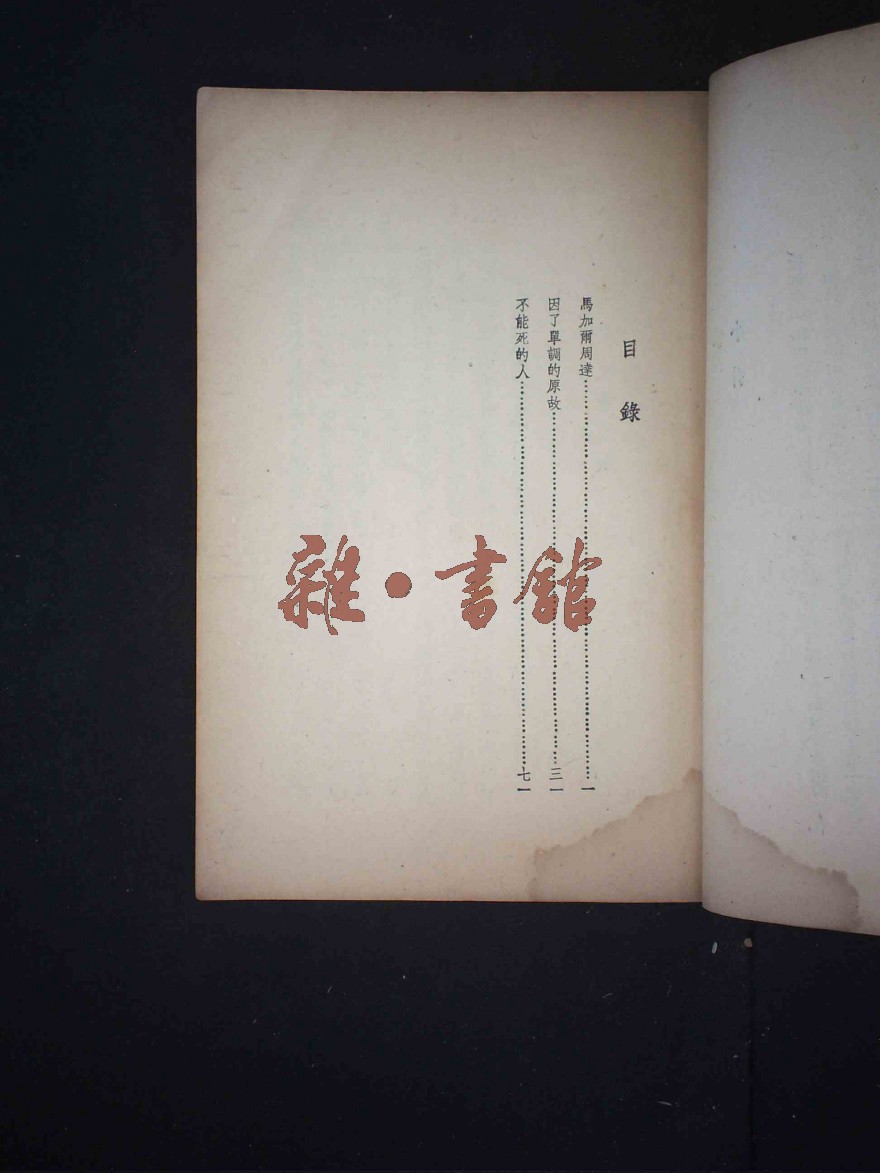 目錄
馬加爾周達……一
因了單調的原故……三一
不能死的人……七一
雜·書館